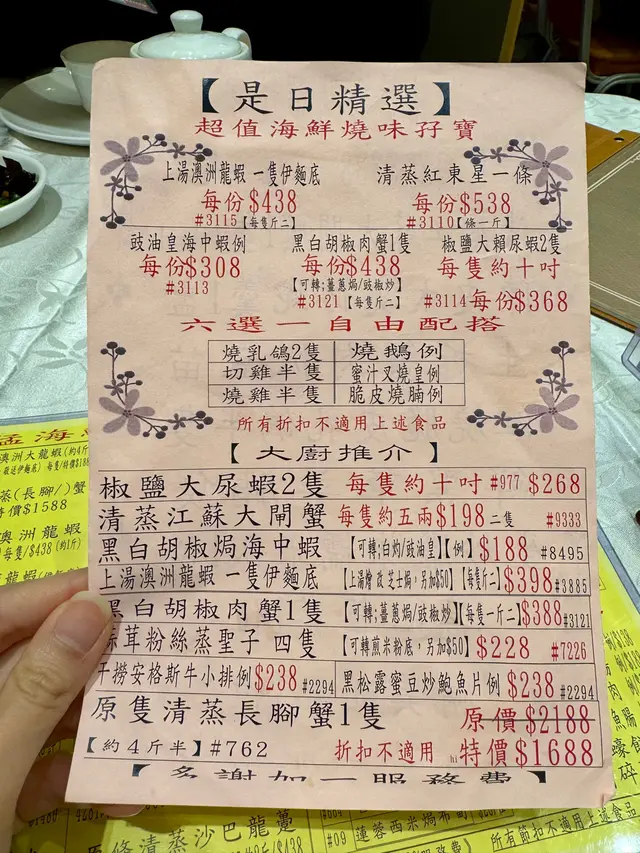 【是日精選】
超值海鮮燒味孖寶
上湯澳洲龍蝦一隻伊麵底
每份$438
#3115【每隻斤二】
清蒸紅東星一條
每份$538
#3110【條一斤】
豉油皇海中蝦例
每份$308
#3113
黑白胡椒肉蟹1隻
每份$438
【可轉;薑蔥焗/豉椒炒】
#3121【每隻斤二】
椒鹽大賴尿蝦2隻
每隻約十吋
#3114每份$368
六選一自由配搭
燒乳鴿2隻 燒鵝例
切雞半隻 蜜汁叉燒皇例
燒雞半隻 脆皮燒腩例
所有折扣不適用上述食品
【大廚推介】
椒鹽大尿蝦2隻 每隻約十吋 #977 $268
清蒸江蘇大閘蟹 每隻約五兩$198二隻 #9333
黑白胡椒焗海中蝦【可轉;白灼/豉油皇】【例】$188 #8495
上湯澳洲龍蝦 一隻伊麵底【上湯燴 改芝士焗,另加$50】【每隻斤二】$398 #3885
黑白胡椒肉蟹1隻【可轉;薑蔥焗/豉椒炒】【每隻一斤二】$388 #3121
茸粉絲蒸聖子 四隻【可轉煎米粉底,另加$50】$228 #7226
干撈安格斯牛小排例$238 #2294
黑松露蜜豆炒鮑魚片例 $238 #2294
原隻清蒸長腳蟹1隻 原價$2188
【約4斤半】#762 折扣不適用 特價$1688
【多謝加一服務費】
澳洲大龍蝦(約4斤
$1588
澳洲龍蝦
原條清蒸沙巴龍躉
#09 蓮蓉西米焗布甸